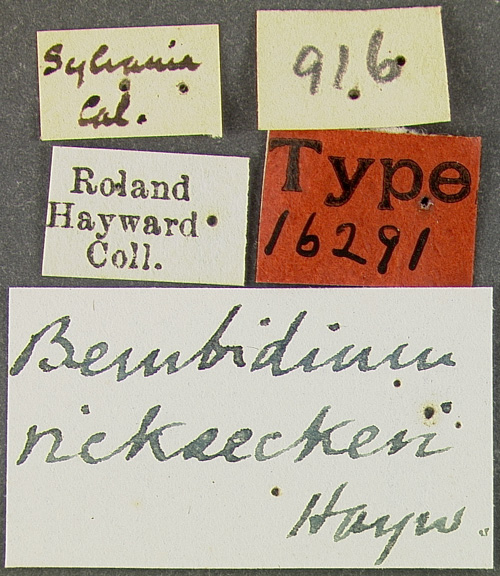 Sylvania
Cal.
916
Roland
Hayward
Coll.
Type
16291
Bembidium
rickseckeri
Hayw.